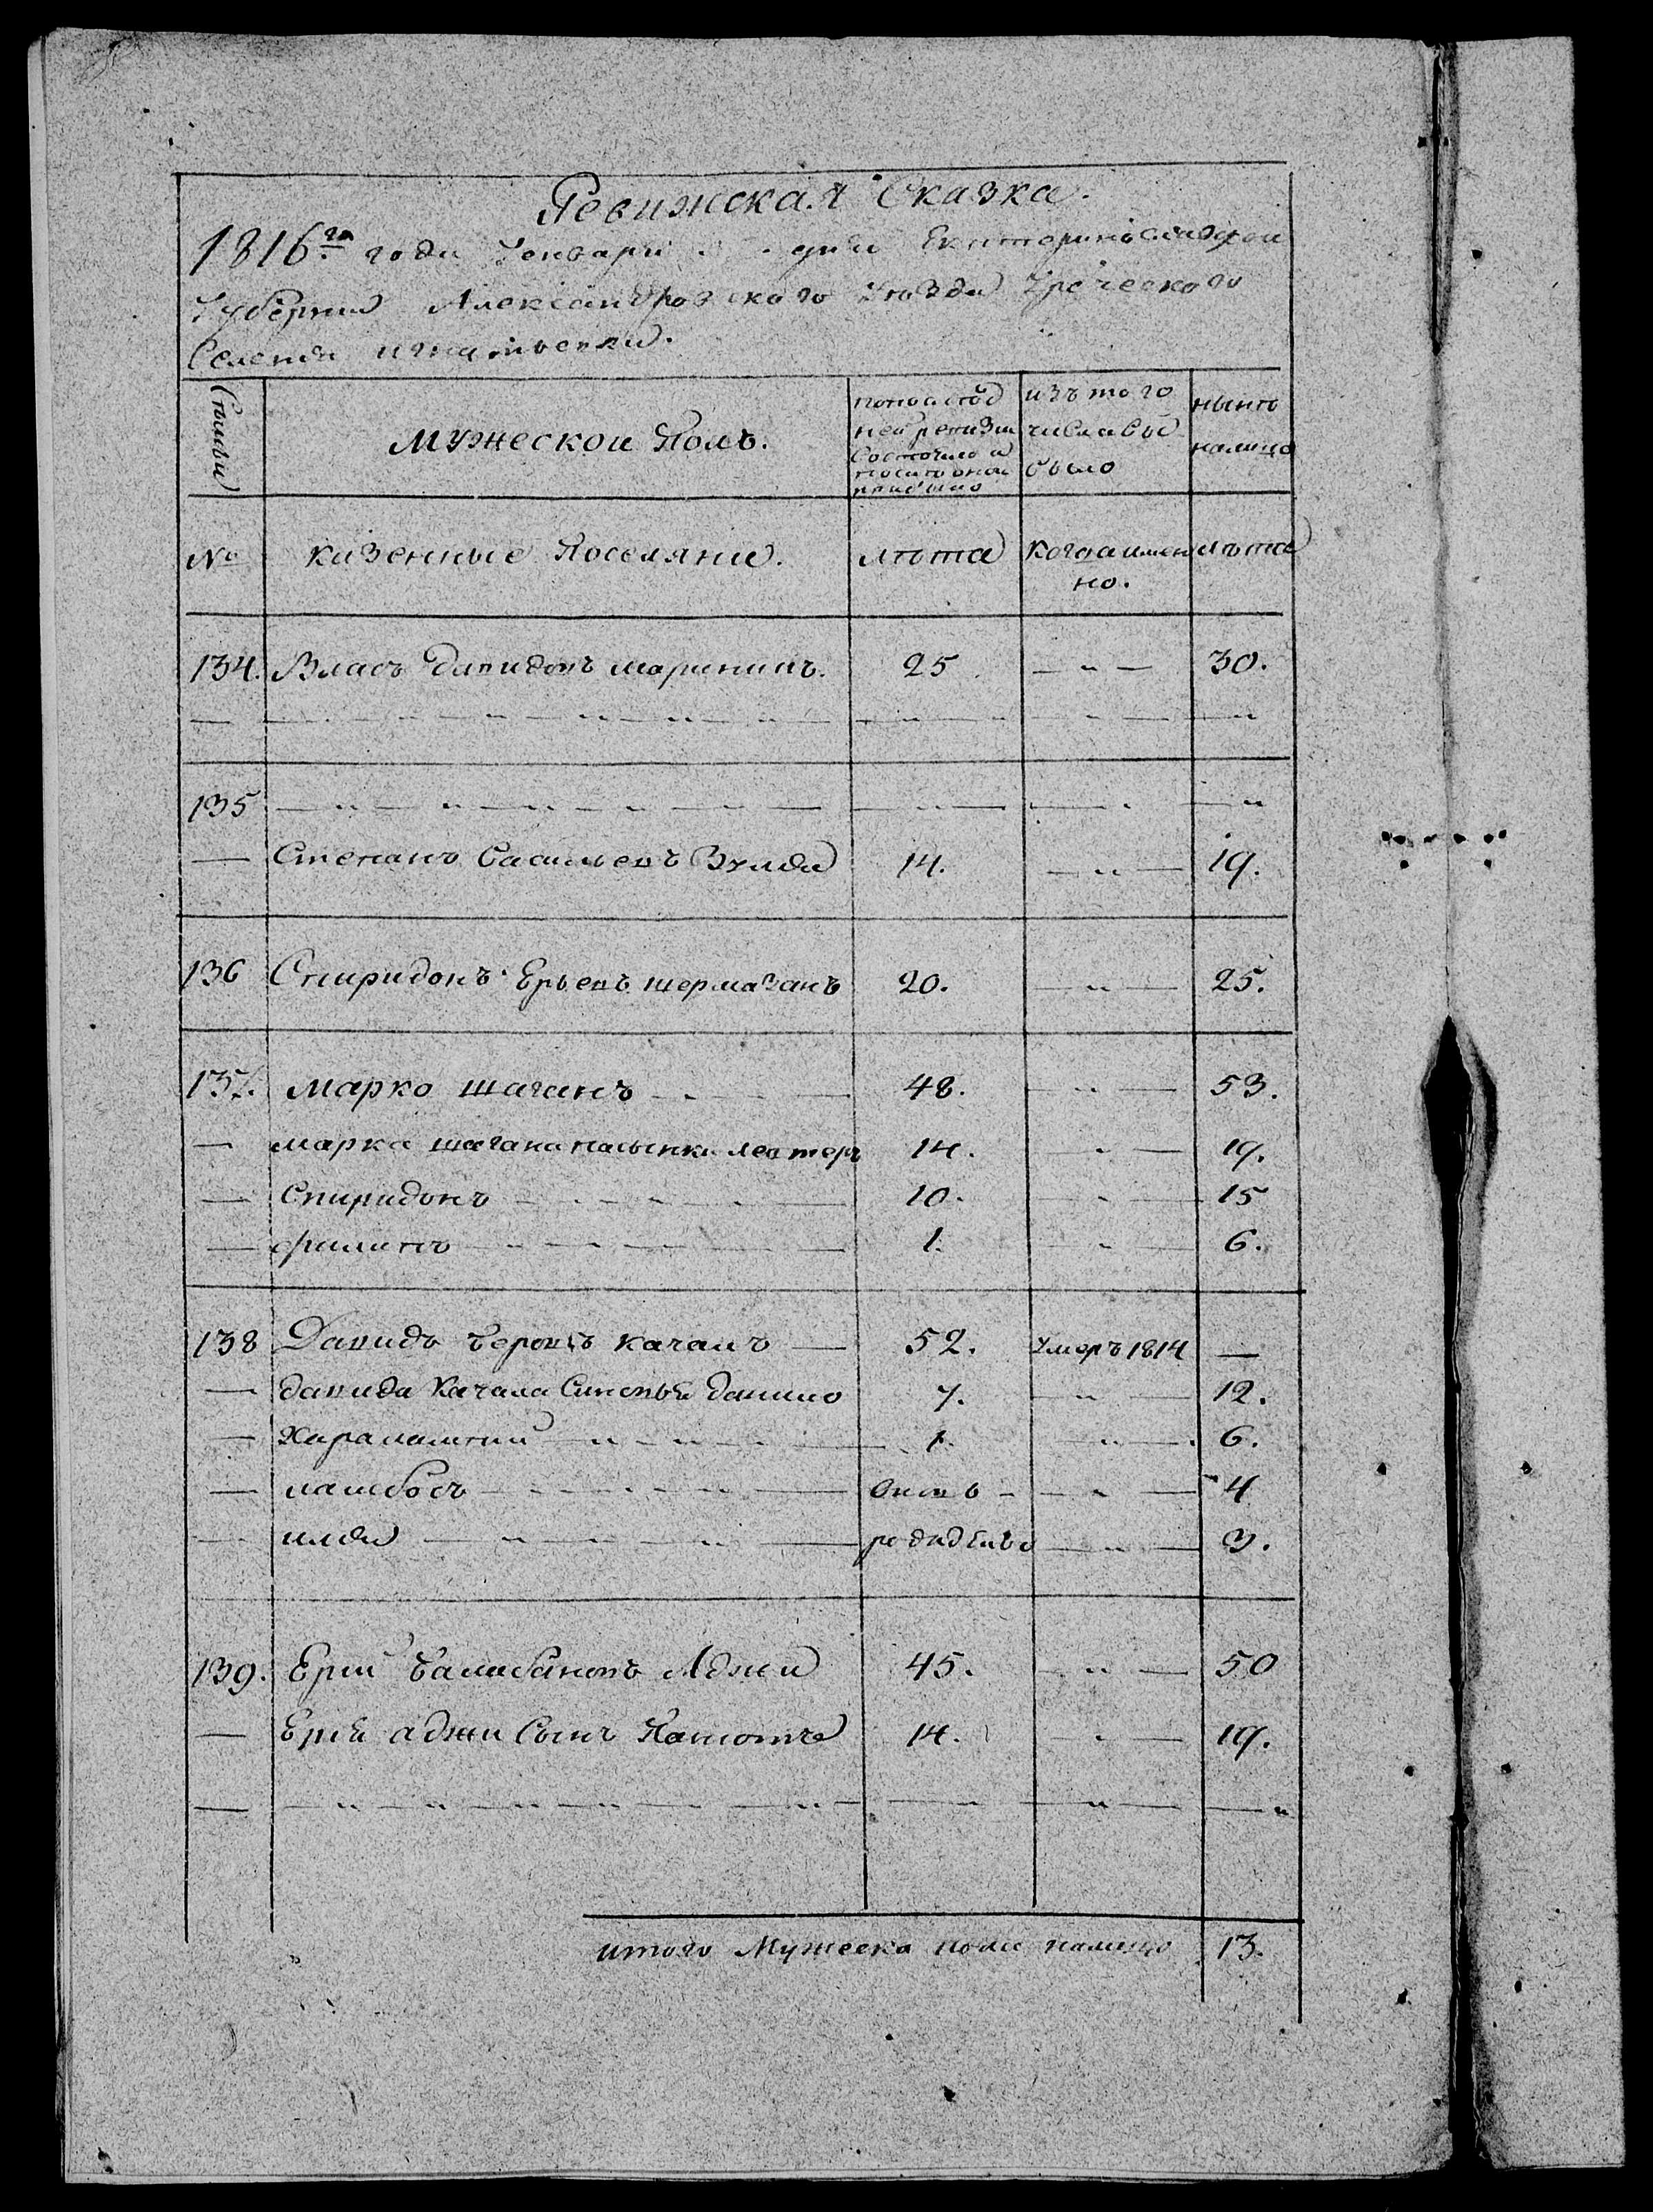 Ревижская Сказка.
1816го года Генваря дня Екатеринославской
Губернии Александровского Уезда Греческого
Селения игнатьевки.
Семьи
Мужескои Полъ.
попослед
ней ревизии
Состояло и
после оной
прибыло
изъ того
числа вы
было
нынѣ
налицо
№
казенные Поселяне.
лѣта
Когда имен
но.
лѣта
134. Власъ давидовъ 25 — " — 30.
135 — " —
— Степанъ Васильевъ 14. — " — 19.
136 Спиридонъ Ерьевъ шермазанъ 20. — " — 25.
137. марко шаганъ 48. — " — 53.
— марка шагана 14. — " — 19.
— Спиридонъ 10. — " — 15
— филипъ 1. — " — 6.
138 Давидъ качалъ 52. Умеръ 1814 —
— давида Качала Сыновья данило 7. — " — 12.
— Харалампий 1. — " — 6.
— 4
— илья — " — 3.
139. Ерий Аджи 45. — " — 50
— Ерия аджи Сынъ 14. — " — 19.
итого Мужеска пола налицо 13.